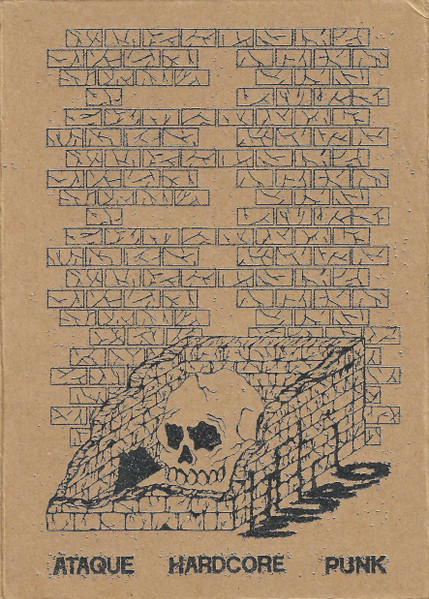 ATAQUE HARDCORE PUNK